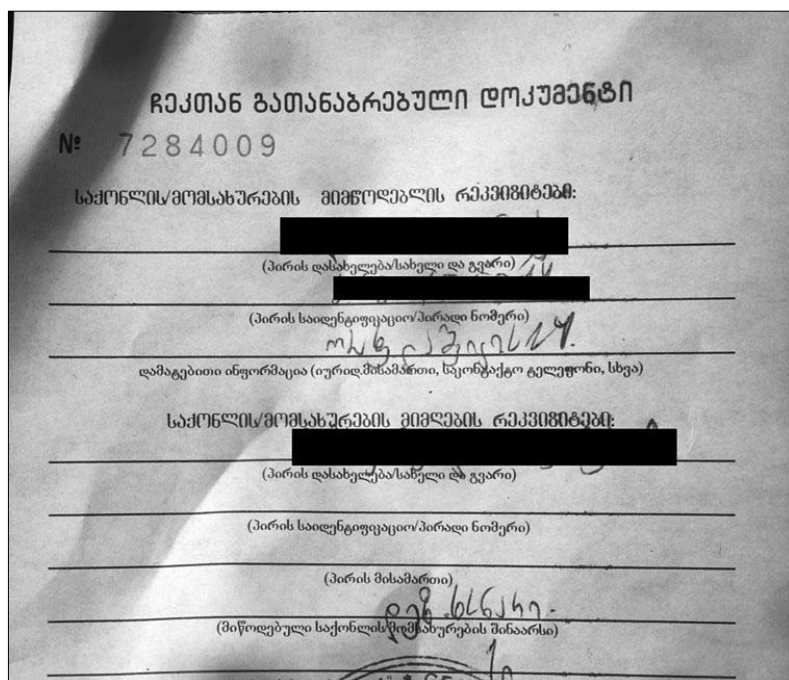 ჩეკთან გათანაბრებული დოკუმენტი
№ 7284009
საქონლის/მომსახურების მიმწოდებლის რეკვიზიტები:
(პირის დასახელება/სახელი და გვარი)
(პირის საიდენტიფიკაციო/პირადი ნომერი)
დამატებითი ინფორმაცია (იურიდ.მისამართი, საკონტაქტო ტელეფონი, სხვა)
საქონლის/მომსახურების მიმღების რეკვიზიტები:
(პირის დასახელება/სახელი და გვარი)
(პირის საიდენტიფიკაციო/პირადი ნომერი)
(პირის მისამართი)
დეზ. ხსნარი.
(მიწოდებული საქონლის/მომსახურების შინაარსი)